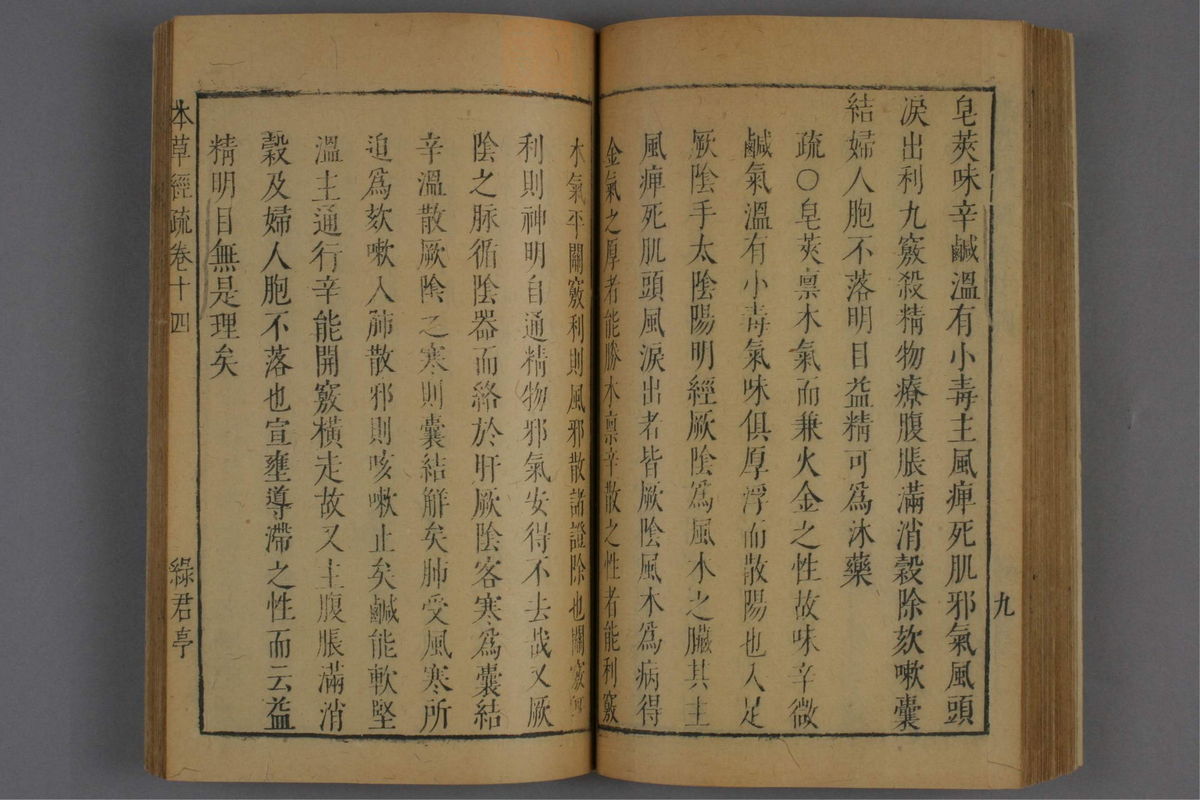 九
皂莢味辛鹹溫有小毒主風痺死肌邪氣風頭
淚出利九竅殺精物療腹脹滿消穀除欬嗽囊
結婦人胞不落明目益精可爲沐藥
疏○皂莢禀木氣而兼火金之性故味辛微
鹹氣溫有小毒氣味俱厚浮而散陽也入足
厥陰手太陰陽明經厥陰爲風木之臟其主
風痺死肌頭風淚出者皆厥陰風木爲病得
金氣之厚者能勝木禀辛散之性者能利竅
木氣平關竅利則風邪散諸證除也關竅
利則神明自通精物邪氣安得不去哉又厥
陰之脉循陰器而絡於肝厥陰客寒爲囊結
辛溫散厥陰之寒則囊結解矣肺受風寒所
迫爲欬嗽入肺散邪則咳嗽止矣鹹能軟堅
溫主通行辛能開竅橫走故又主腹脹滿消
穀及婦人胞不落也宣壅導滯之性而云益
精明目無是理矣
本草經疏卷十四
綠君亭